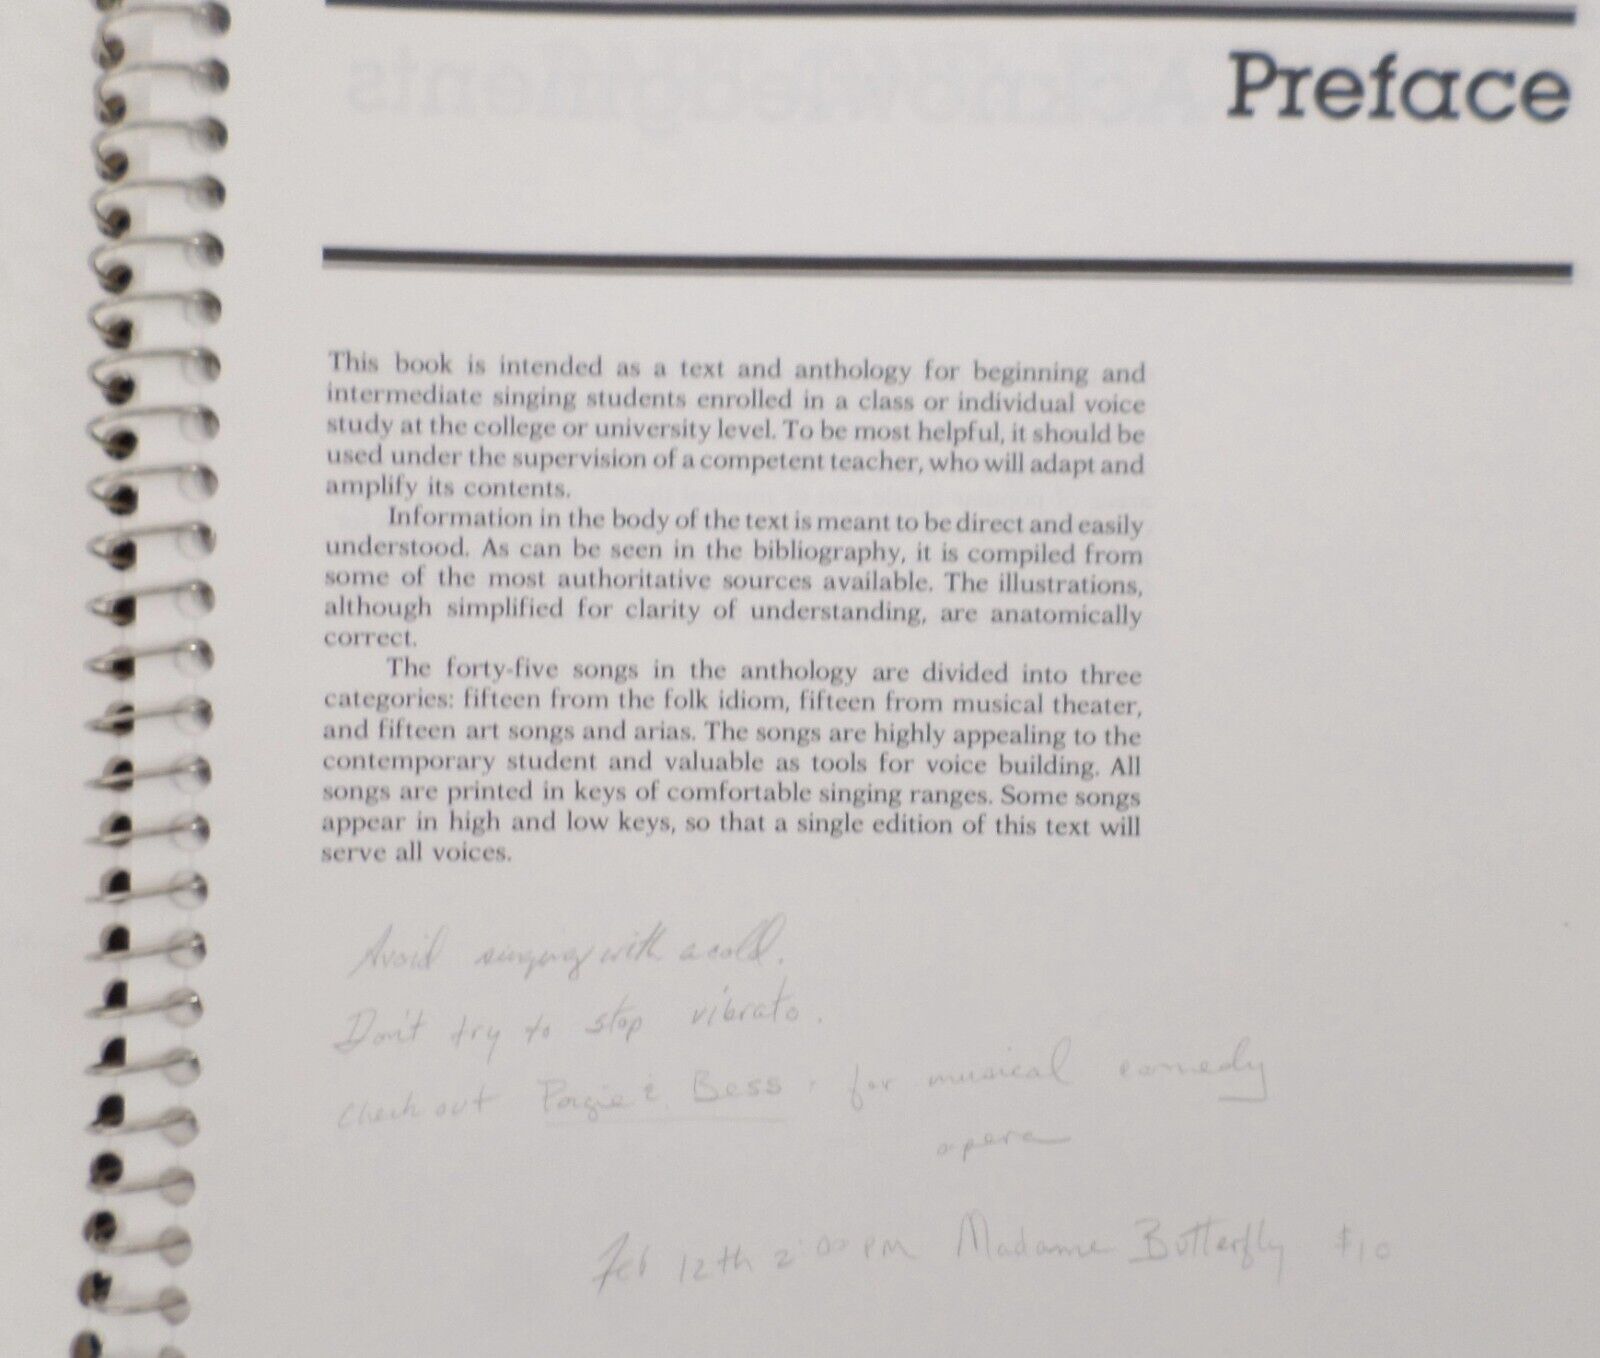 Preface
This book is intended as a text and anthology for beginning and
intermediate singing students enrolled in a class or individual voice
study at the college or university level. To be most helpful, it should be
used under the supervision of a competent teacher, who will adapt and
amplify its contents.
Information in the body of the text is meant to be direct and easily
understood. As can be seen in the bibliography, it is compiled from
some of the most authoritative sources available. The illustrations,
although simplified for clarity of understanding, are anatomically
correct.
The forty-five songs in the anthology are divided into three
categories: fifteen from the folk idiom, fifteen from musical theater,
and fifteen art songs and arias. The songs are highly appealing to the
contemporary student and valuable as tools for voice building. All
songs are printed in keys of comfortable singing ranges. Some songs
appear in high and low keys, so that a single edition of this text will
serve all voices.
Avoid singing with a cold.
Don't try to stop vibrato.
Check out Porgie & Bess for musical comedy
opera
Feb 12th 2:00 PM Madame Butterfly $10
Acknowledgments